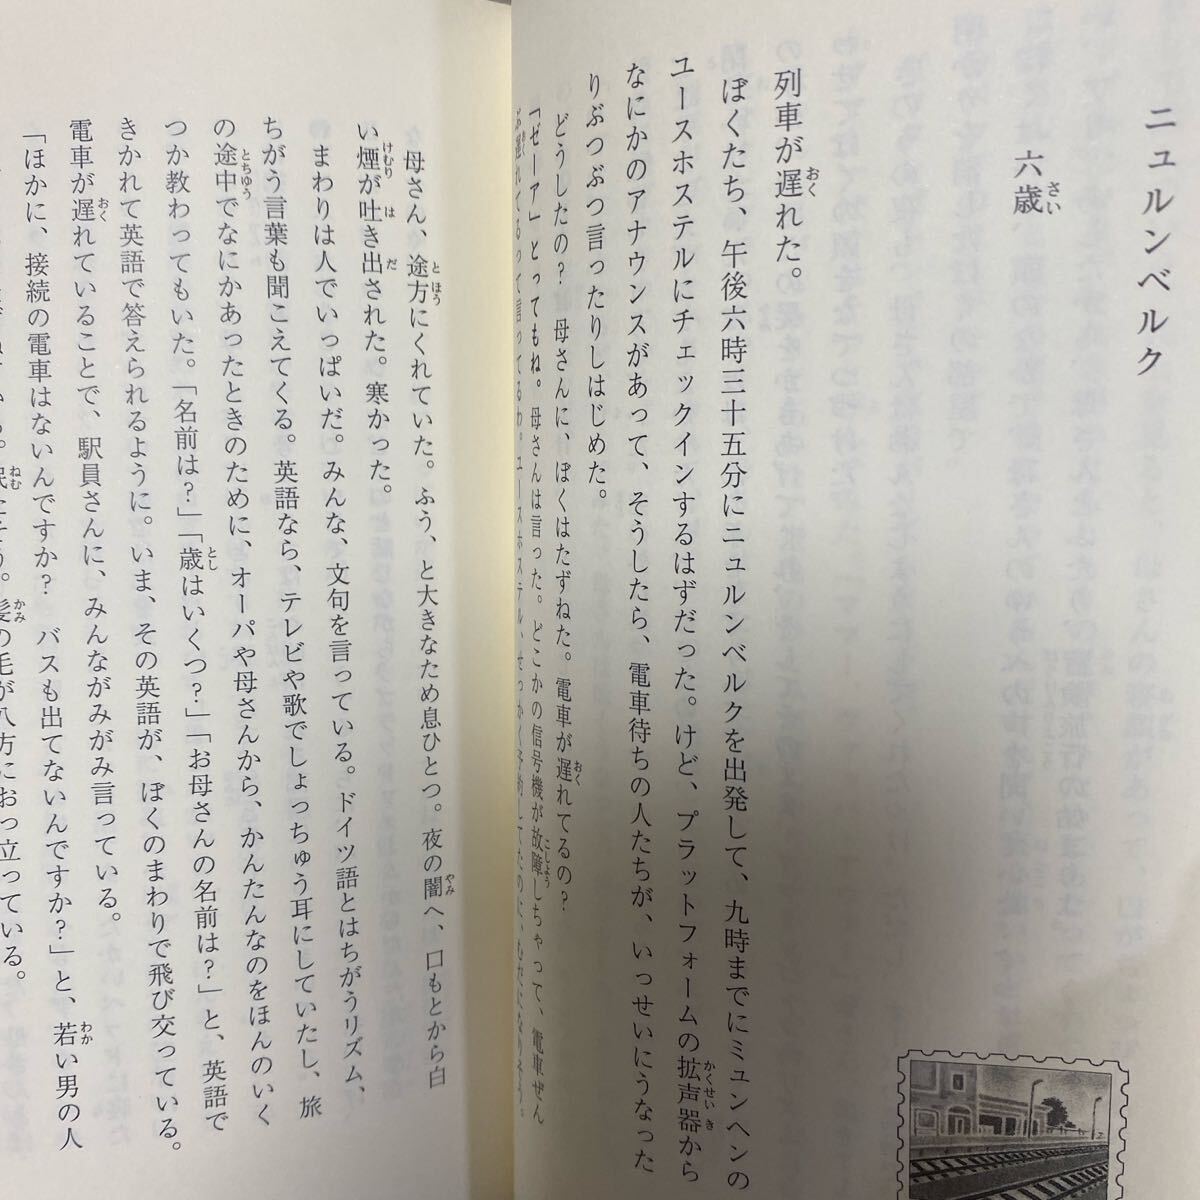 ニュルンベルク
六歳
さい
列車が遅れた。
おく
ぼくたち、午後六時三十五分にニュルンベルクを出発して、九時までにミュンヘンの
ユースホステルにチェックインするはずだった。けど、プラットフォームの拡声器から
かくせいき
なにかのアナウンスがあって、そうしたら、電車待ちの人たちが、いっせいにうなった
りぶつぶつ言ったりしはじめた。
どうしたの？ 母さんに、ぼくはたずねた。電車が遅れてるの？
おく
「ゼーア」とってもね。母さんは言った。どこかの信号機が故障しちゃって、電車ぜん
こしょう
ぶ遅れてるって言ってるわ。ユースホステル、せっかく予約してたのに、むだになりそう。
おく
母さん、途方にくれていた。ふう、と大きなため息ひとつ。夜の闇へ、口もとから白
とほう
やみ
い煙が吐き出された。寒かった。
けむり
は
だ
まわりは人でいっぱいだ。みんな、文句を言っている。ドイツ語とはちがうリズム、
ちがう言葉も聞こえてくる。英語なら、テレビや歌でしょっちゅう耳にしていたし、旅
の途中でなにかあったときのために、オーパや母さんから、かんたんなのをほんのいく
とちゅう
つか教わってもいた。「名前は？」「歳はいくつ？」「お母さんの名前は？」と、英語で
とし
きかれて英語で答えられるように。いま、その英語が、ぼくのまわりで飛び交っている。
電車が遅れていることで、駅員さんに、みんながみがみ言っている。
おく
「ほかに、接続の電車はないんですか？ バスも出てないんですか？」と、若い男の人
わか
眠たそう。髪の毛が八方におっ立っている。
ねむ
かみ